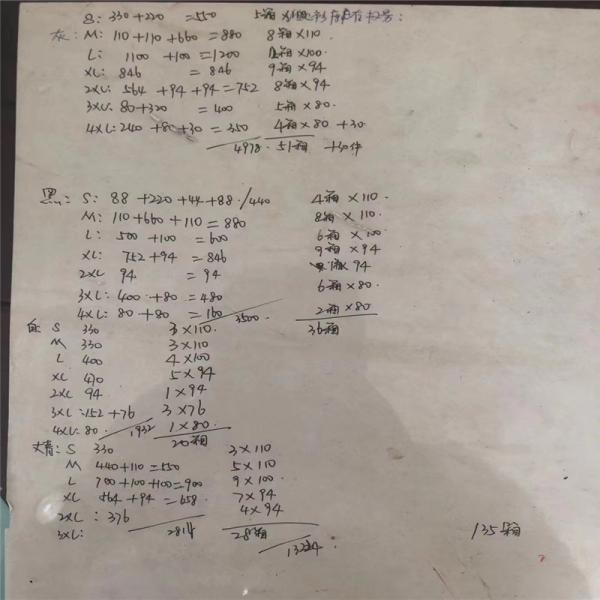 S: 330+220 =550 5箱×110
灰: M: 110+110+660=880 8箱×110
L: 1100+100=1200 12箱×100.
XL: 846 =846 9箱×94
2XL: 564+94+94=752 8箱×94
3XL: 80+320 =400 5箱×80.
4XL: 240+80+30=350 4箱×80+30
4978. 51箱 +30件
黑: S: 88+220+44+88 /440 4箱×110
M: 110+660+110=880 8箱×110.
L: 500+100=600 6箱×100
XL: 752+94=846 9箱×94
2XL 94 =94 1箱×94
3XL: 400+80=480 6箱×80.
4XL: 80+80=160 3500. 2箱×80
36箱
白: S 330 3×110.
M 330 3×110
L 400 4×100
XL 470 5×94
2XL 94 1×94
3XL: 152+76 3×76
4XL: 80. 1932 1×80.
20箱
S 330 3×110
M 440+110=550 5×110
L 700+100+100=900 9×100
XL 564+94=658. 7×94
2XL: 376 4×94
3XL: 2814 28箱
135箱